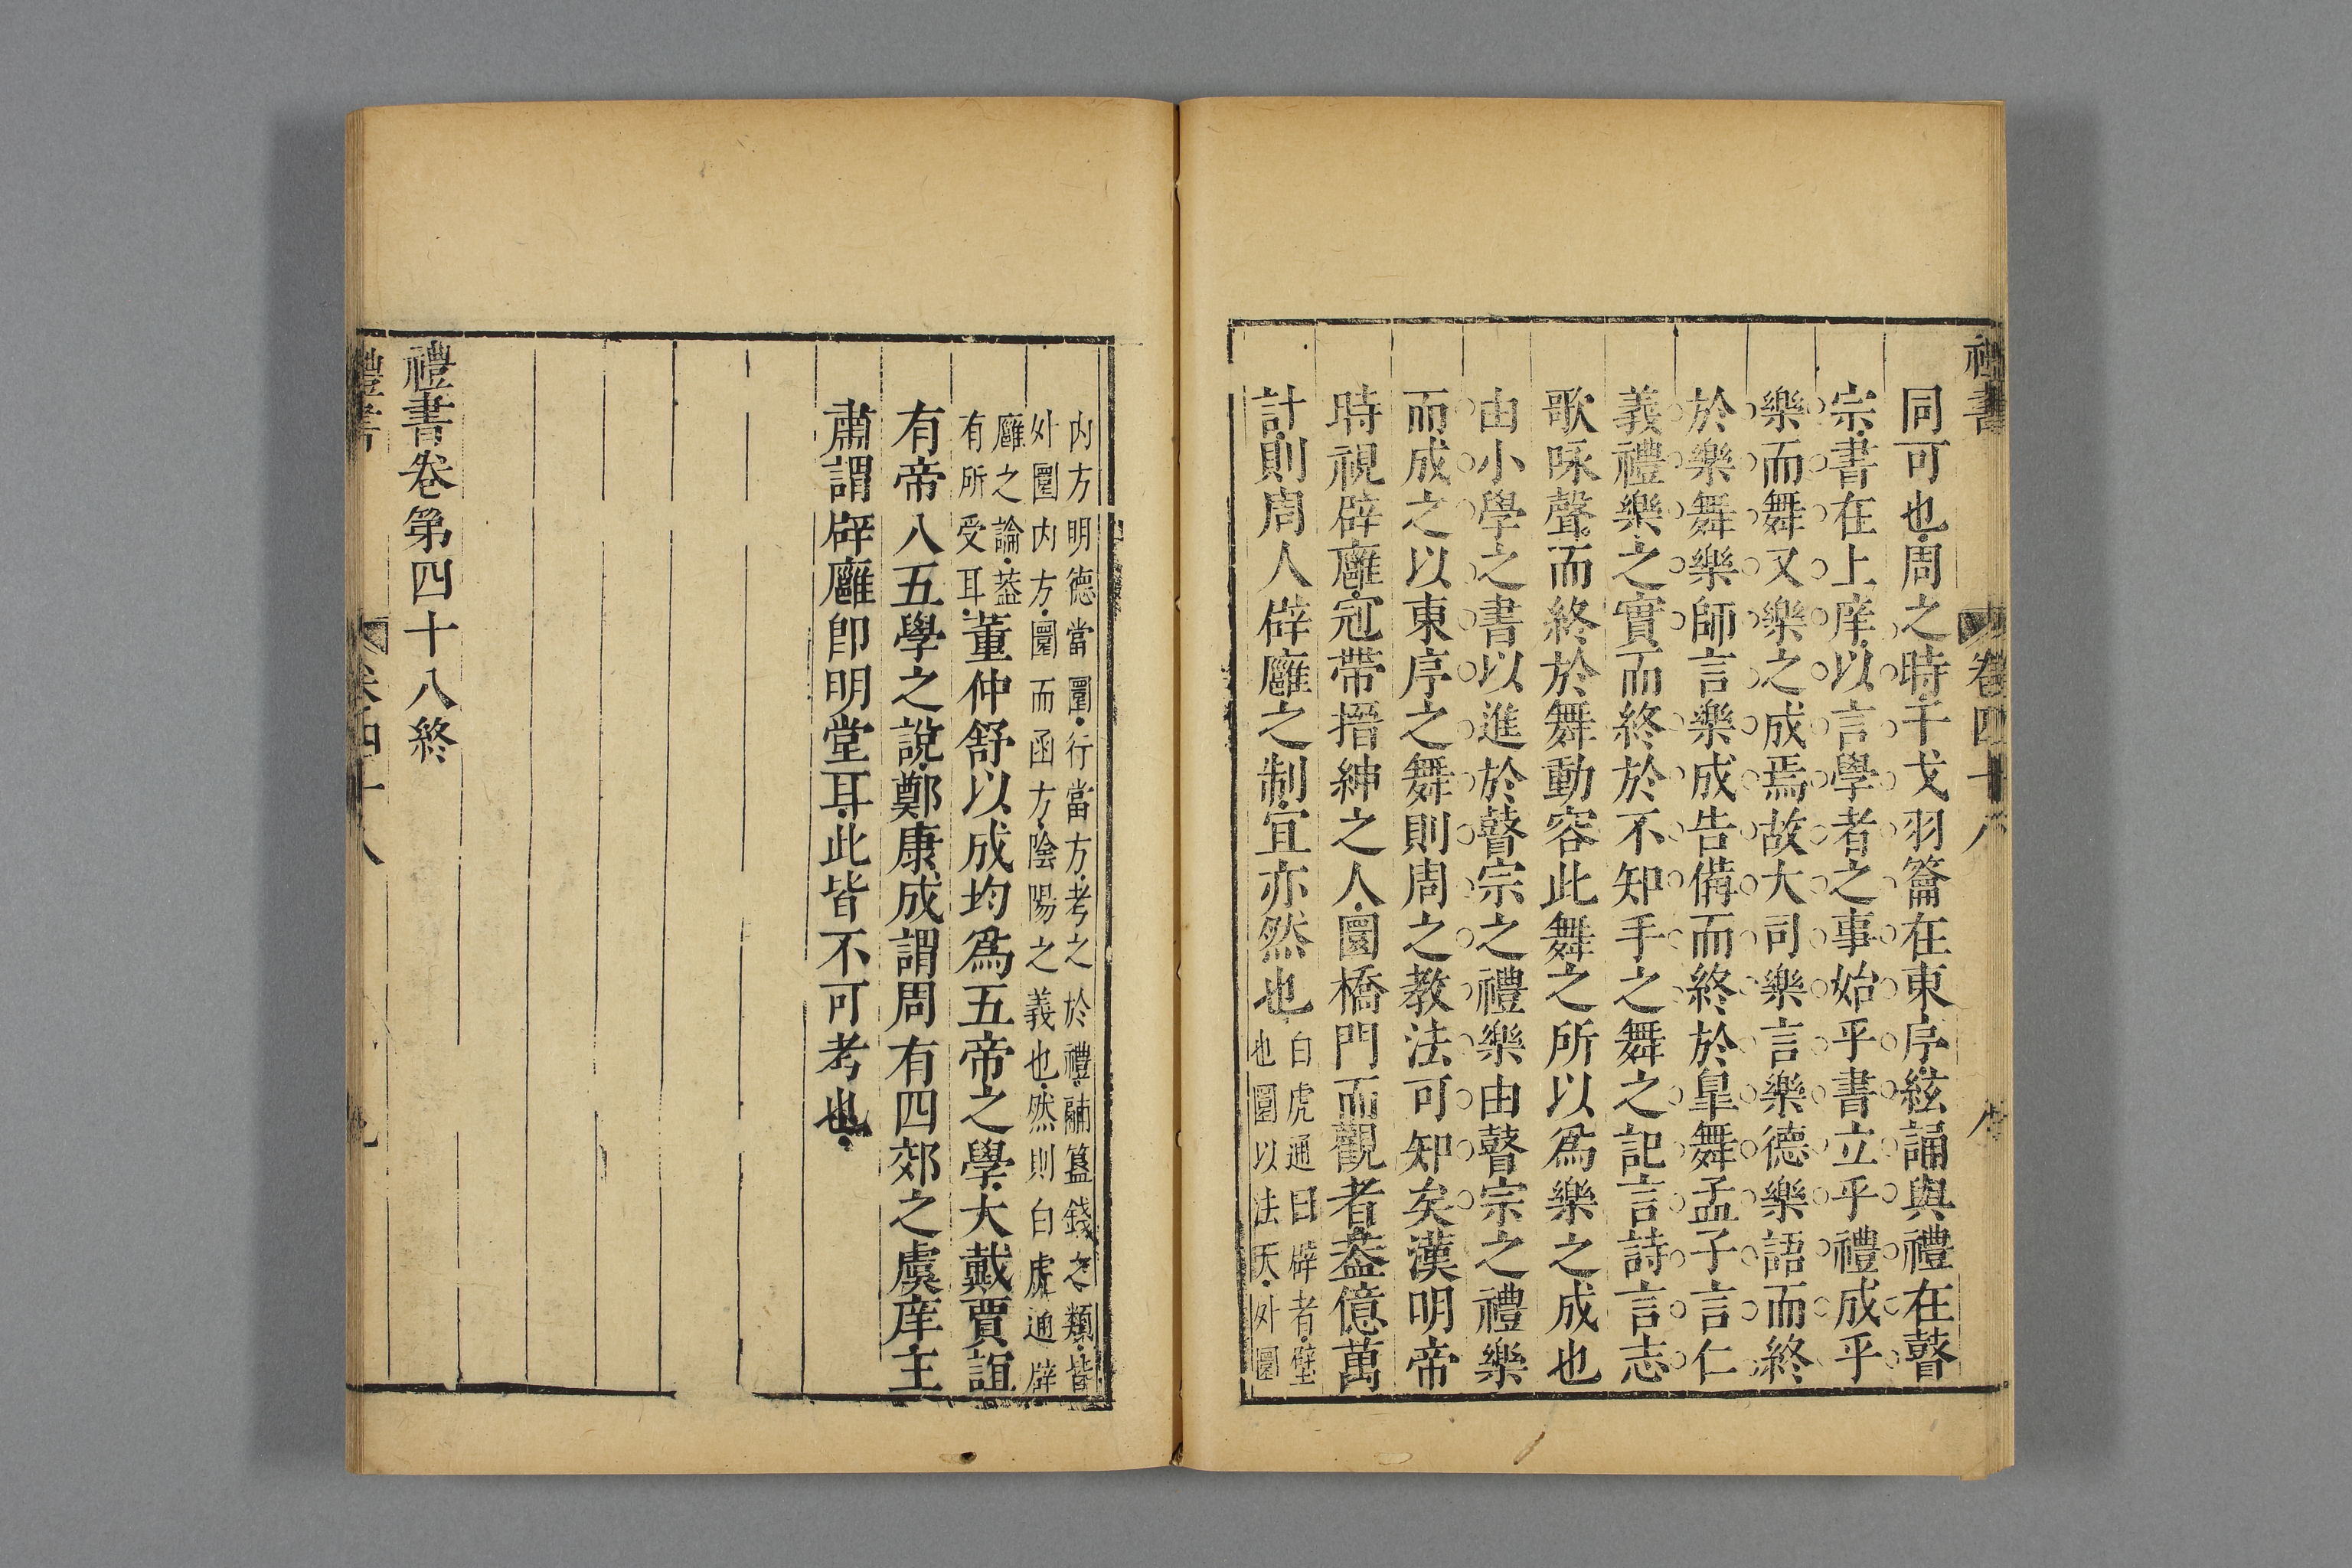 禮書 卷四十八 八
同可也周之時干戈羽籥在東序絃誦與禮在瞽
宗書在上庠以言學者之事始乎書立乎禮成乎
樂而舞又樂之成焉故大司樂言樂德樂語而終
於樂舞樂師言樂成告備而終於臯舞孟子言仁
義禮樂之實而終於不知手之舞之記言詩言志
歌咏聲而終於舞動容此舞之所以爲樂之成也
由小學之書以進於瞽宗之禮樂由瞽宗之禮樂
而成之以東序之舞則周之教法可知矣漢明帝
時視辟廱冠帶搢紳之人圜橋門而觀者葢億萬
計則周人辟廱之制宜亦然也白虎通曰辟者璧
也圜以法天外圜
内方明德當圜行當方考之於禮鬴簋錢之類皆
外圜内方圜而函方陰陽之義也然則白虎通辟
廱之論葢
有所受耳董仲舒以成均爲五帝之學大戴賈誼
有帝入五學之說鄭康成謂周有四郊之虞庠王
肅謂辟廱卽明堂耳此皆不可考也
禮書卷第四十八終
禮書 卷四十八 九